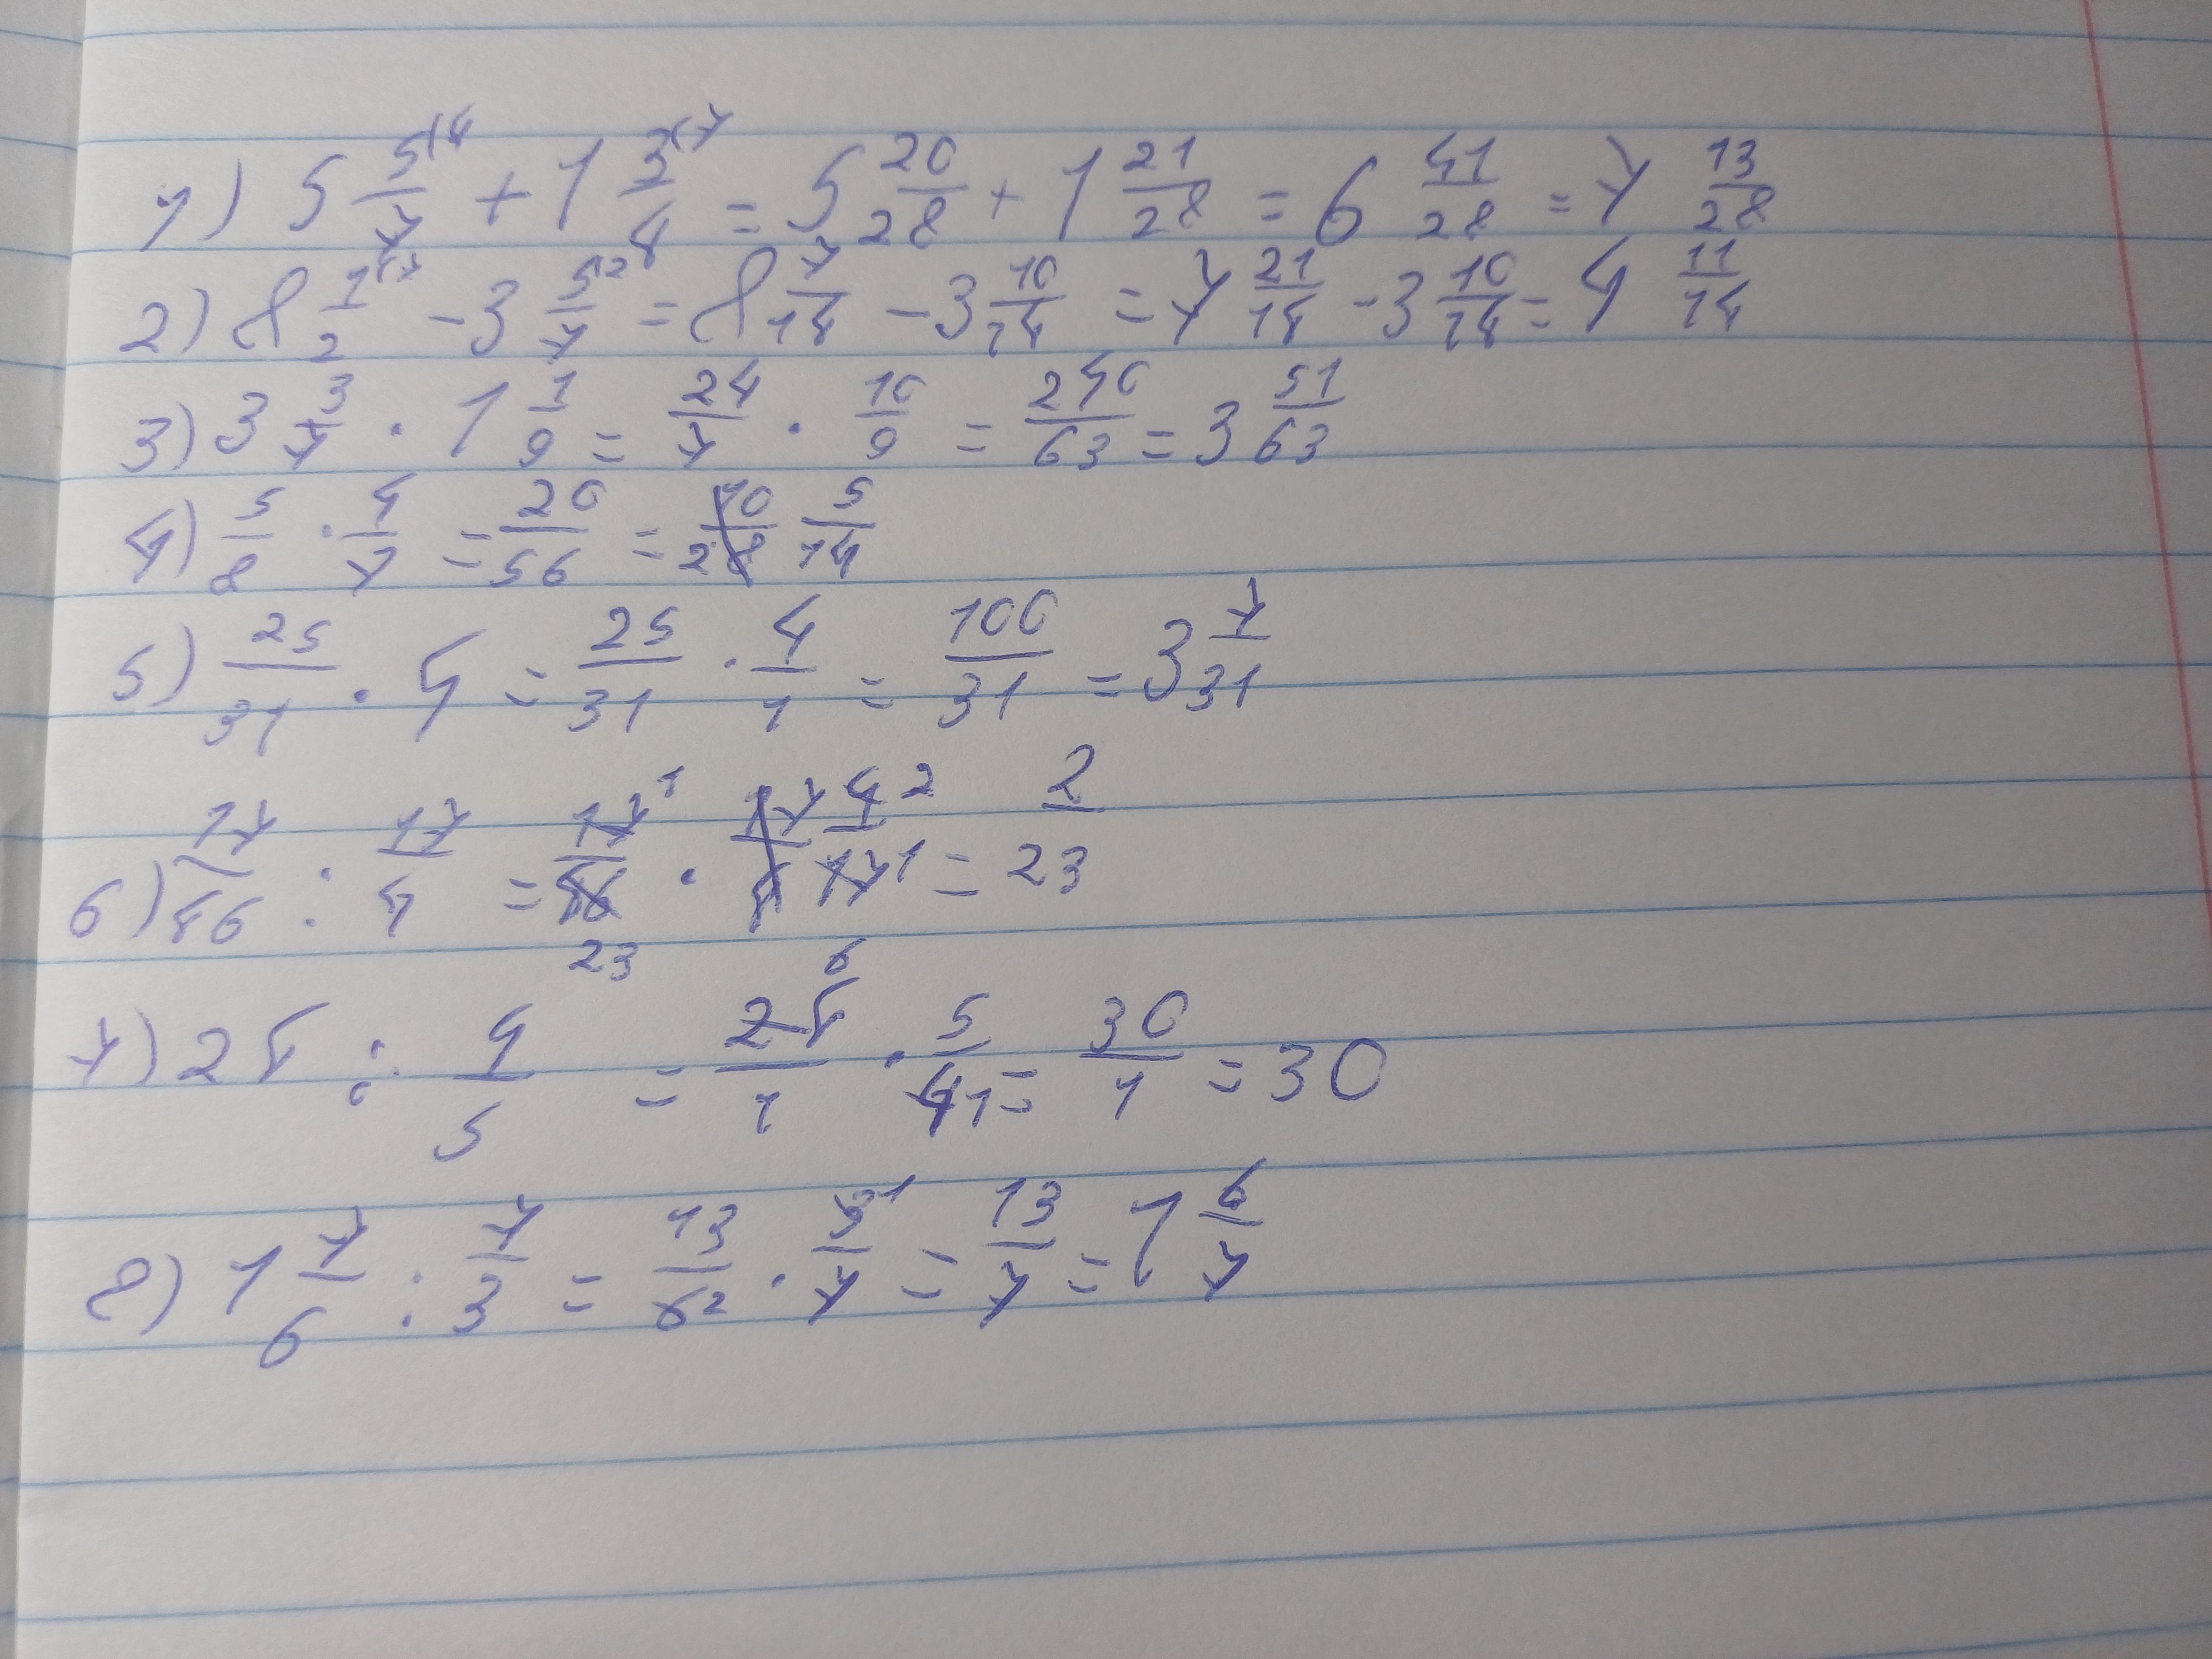 1) 5 5/7 (4 + 1 3/4 (7 = 5 20/28 + 1 21/28 = 6 41/28 = 7 13/28
2) 8 1/2 (7 - 3 5/7 (2 = 8 7/14 - 3 10/14 = 7 21/14 - 3 10/14 = 4 11/14
3) 3 3/7 · 1 1/9 = 24/7 · 10/9 = 240/63 = 3 51/63
4) 5/8 · 4/7 = 20/56 = 10/28 5/14
5) 25/31 · 4 = 25/31 · 4/1 = 100/31 = 3 7/31
6) 17/46 : 17/4 = 17 1/46 23 · 17/4 4 2/17 1 = 2/23
7) 24 : 4/5 = 24 6/1 · 5/4 1 = 30/1 = 30
8) 1 7/6 : 7/3 = 13/6 2 · 3 1/7 = 13/7 = 1 6/7